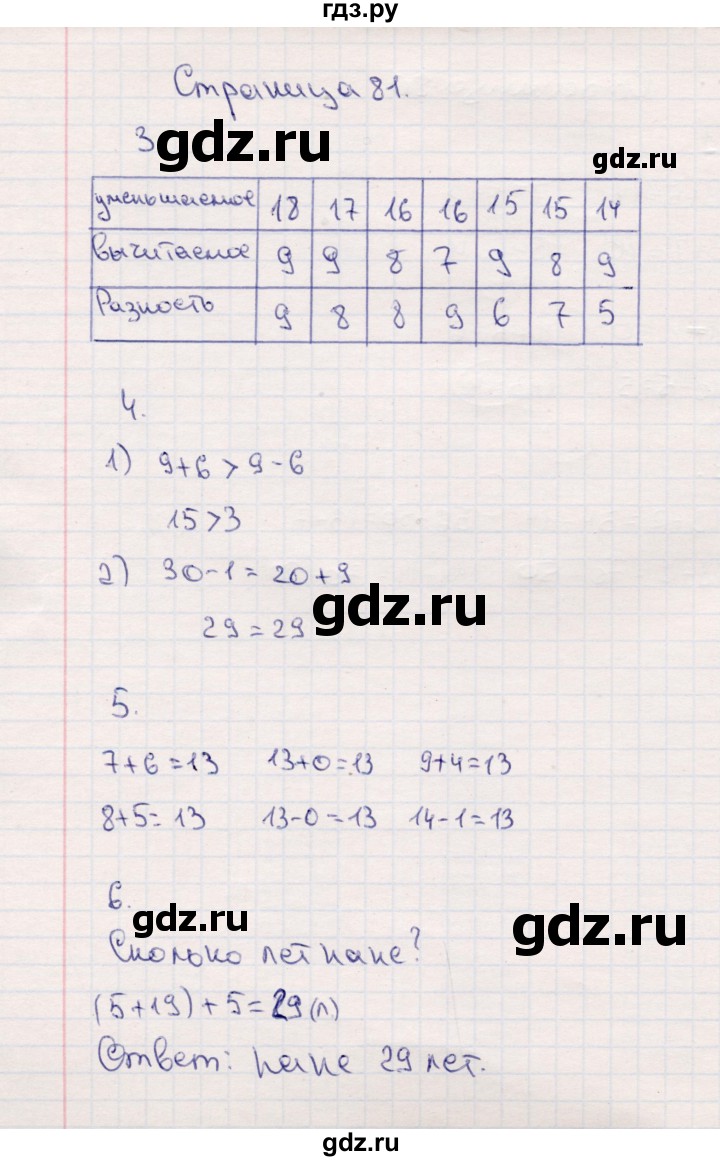 гдз.ру
Страница 81.
3
gdz.ru
gdz.ru
уменьшаемое 18 17 16 16 15 15 14
вычитаемое 9 9 8 7 9 8 9
Разность 9 8 8 9 6 7 5
4.
1) 9+6 > 9-6
15>3
2) 30-1=20+9
gdz.ru
29=29
5.
7+6=13 13+0=13 9+4=13
8+5=13 13-0=13 14-1=13
6.
gdz.ru
gdz.ru
Сколько лет папе?
(5+19)+5=29(л)
Ответ: папе 29 лет.
gdz.ru